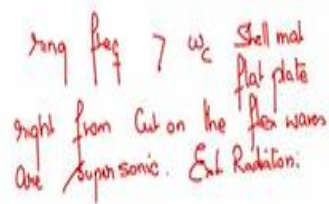 ring freq > ωc Shell mat
flat plate
right from Cut on the flex waves
are supersonic. Ext Radiation: